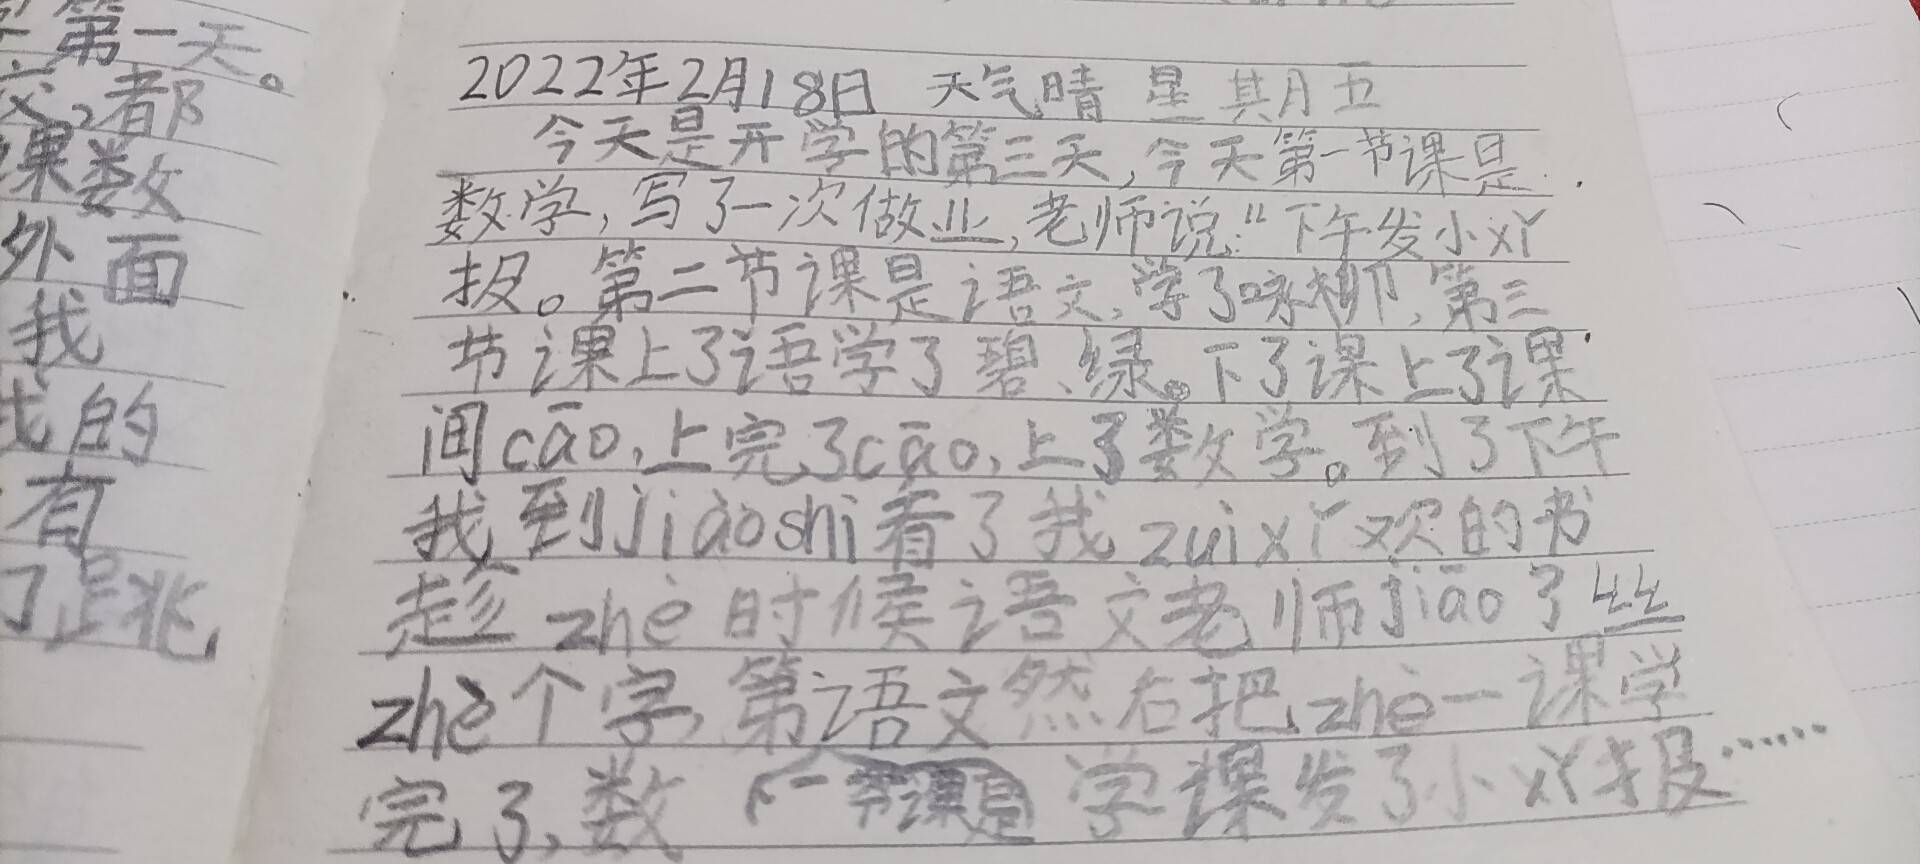 第一天。
交,都
课数
外面
我
我的
有
了是兆
2022年2月18日 天气晴 星其月五
今天是开学的第三天,今天第一节课是
数学,写了一次做业,老师说:“下午发小xǐ
报。第二节课是语文,学了咏柳,第三
节课上了语学了碧、绿。下了课上了课
间cāo,上完了cāo,上了数学。到了下午
我到jiàoshi看了我zuixǐ欢的书
趁zhè时候语文老师jiāo了丝
zhè个字,第语文然右把zhè一课学
完了,数(下一节课是)学课发了小xǐ报……